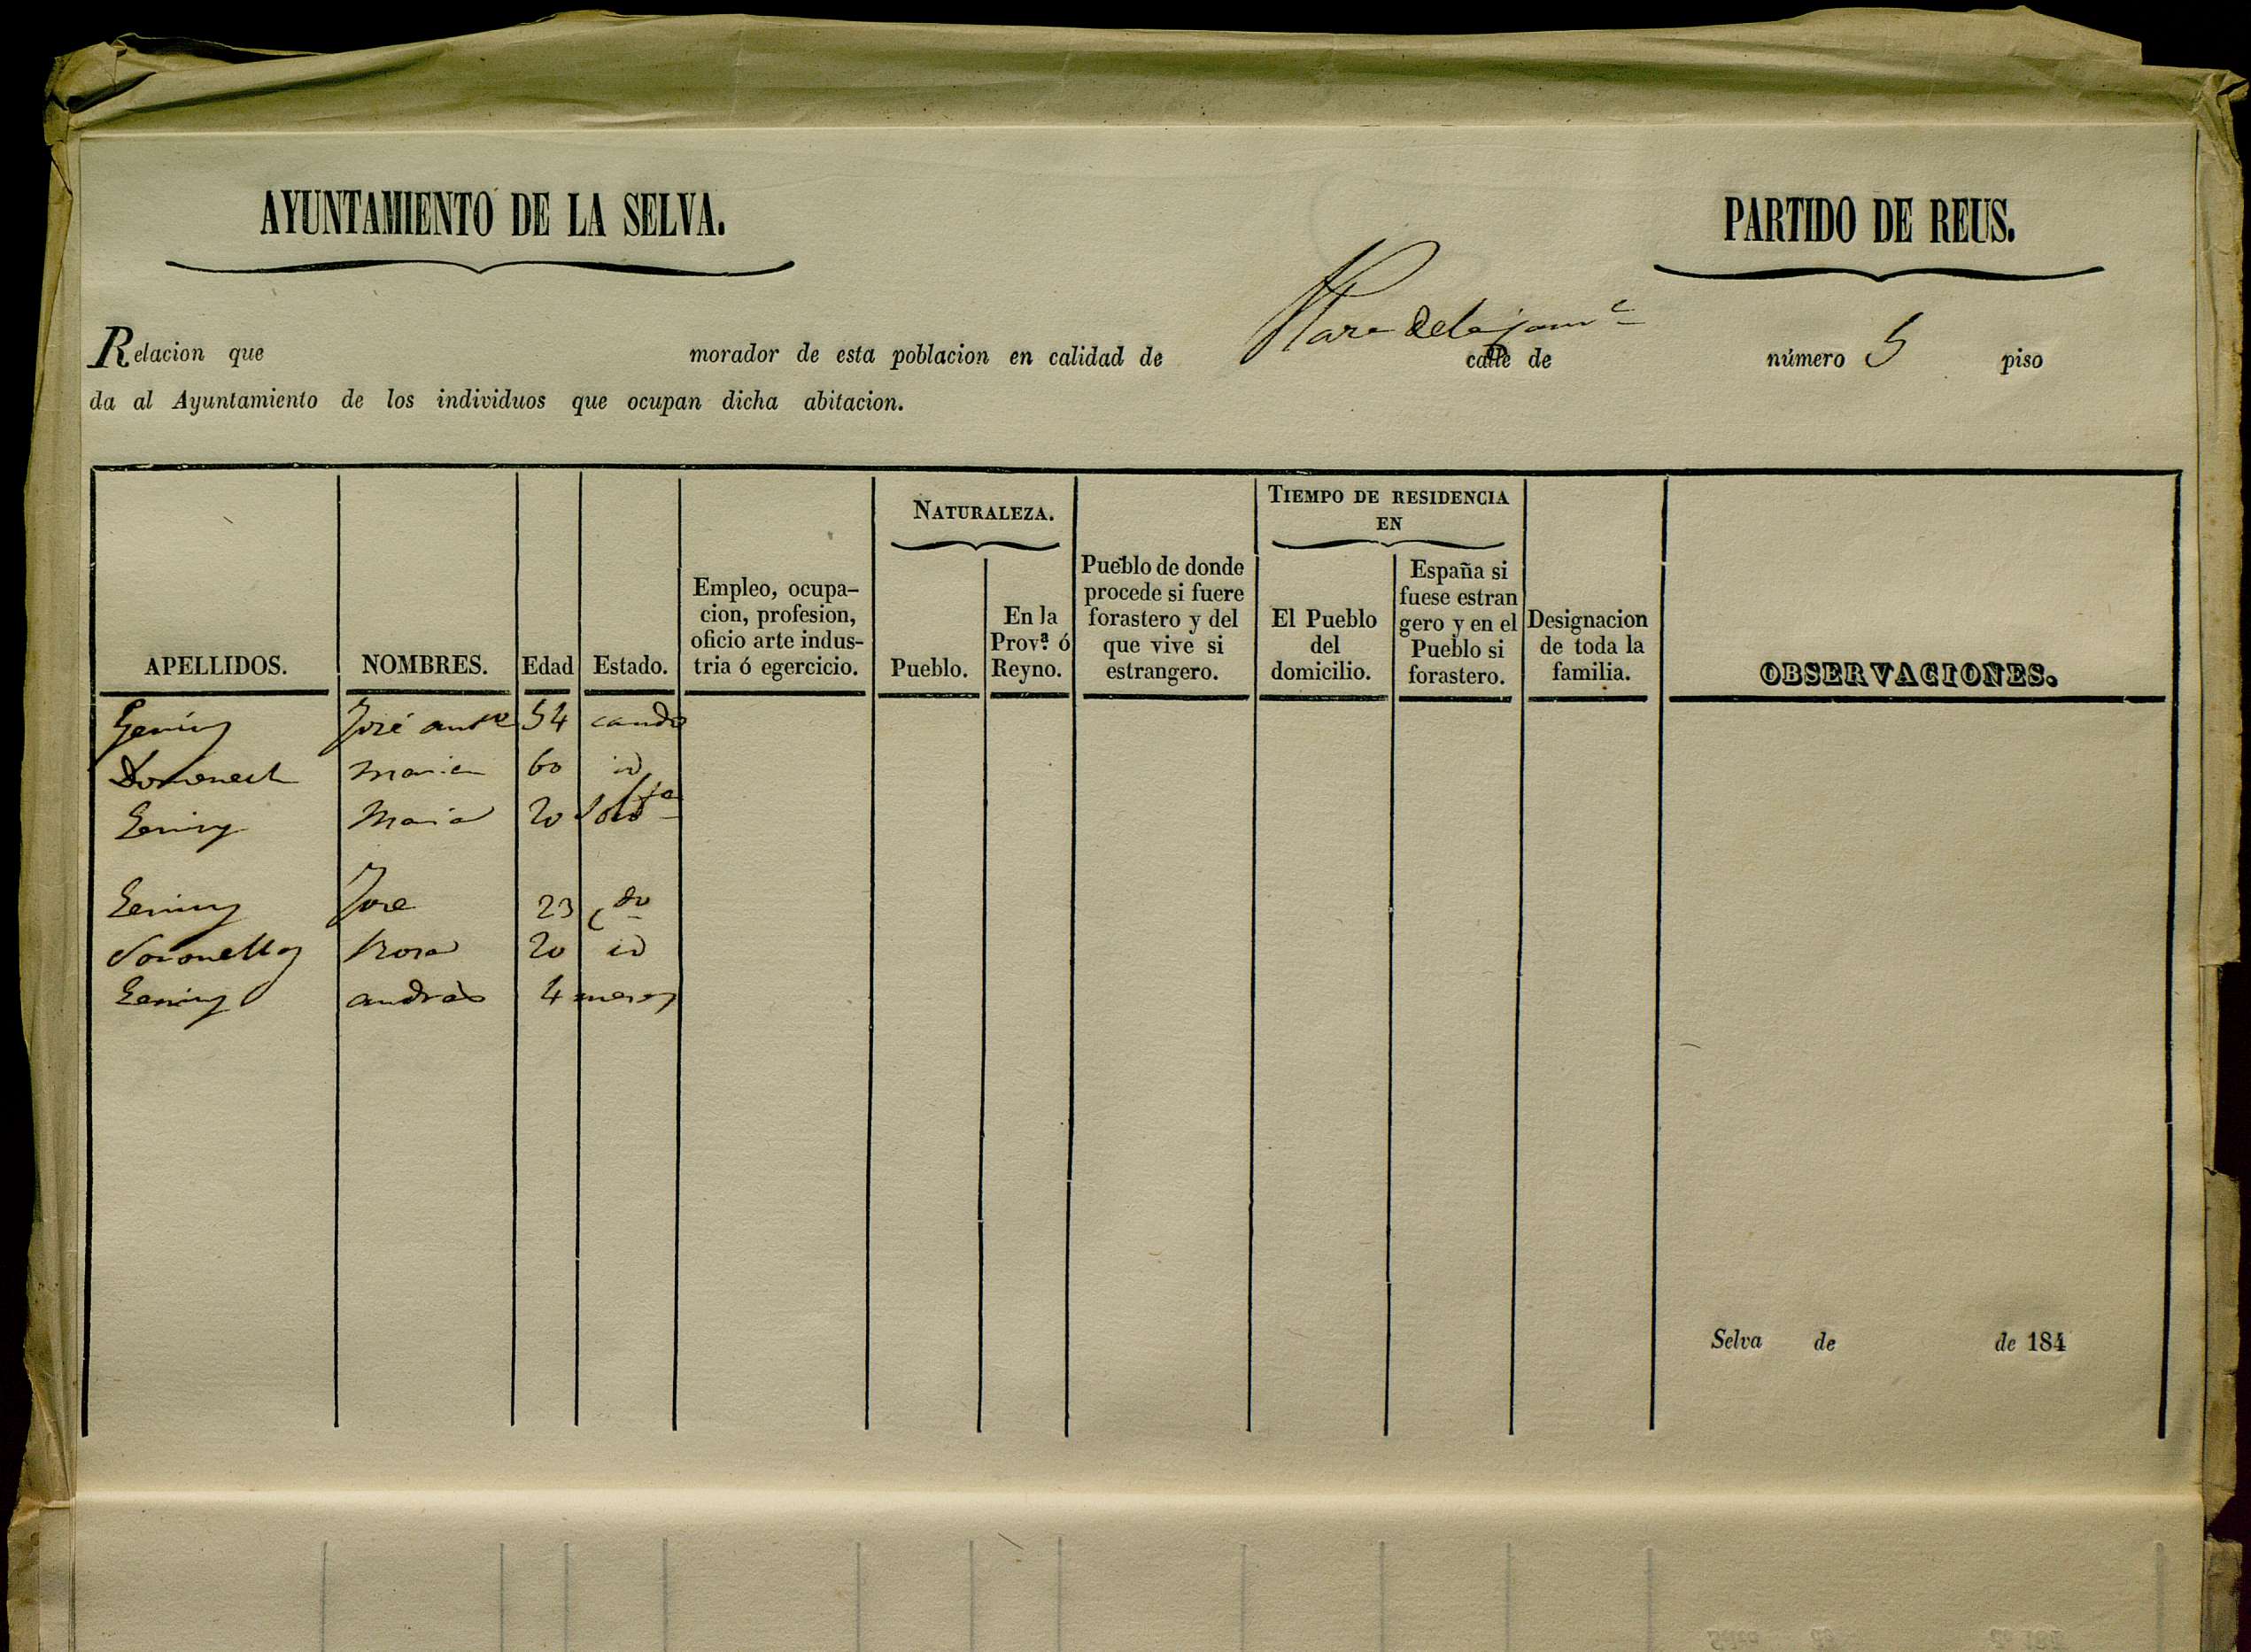 AYUNTAMIENTO DE LA SELVA.
PARTIDO DE REUS.
Relacion que morador de esta poblacion en calidad de calle de número 5 piso
da al Ayuntamiento de los individuos que ocupan dicha abitacion.
NATURALEZA.
TIEMPO DE RESIDENCIA
EN
APELLIDOS.
NOMBRES.
Edad
Estado.
Empleo, ocupa-
cion, profesion,
oficio arte indus-
tria ó egercicio.
Pueblo.
En la
Prov.ª ó
Reyno.
Pueblo de donde
procede si fuere
forastero y del
que vive si
estrangero.
El Pueblo
del
domicilio.
España si
fuese estran
gero y en el
Pueblo si
forastero.
Designacion
de toda la
familia.
OBSERVACIONES.
José 54
Domenech Maria 60 id
Maria 20 Solt.ª
Jose 23 c.do
Rosa 20 id
andras 4 meses
Selva de de 184